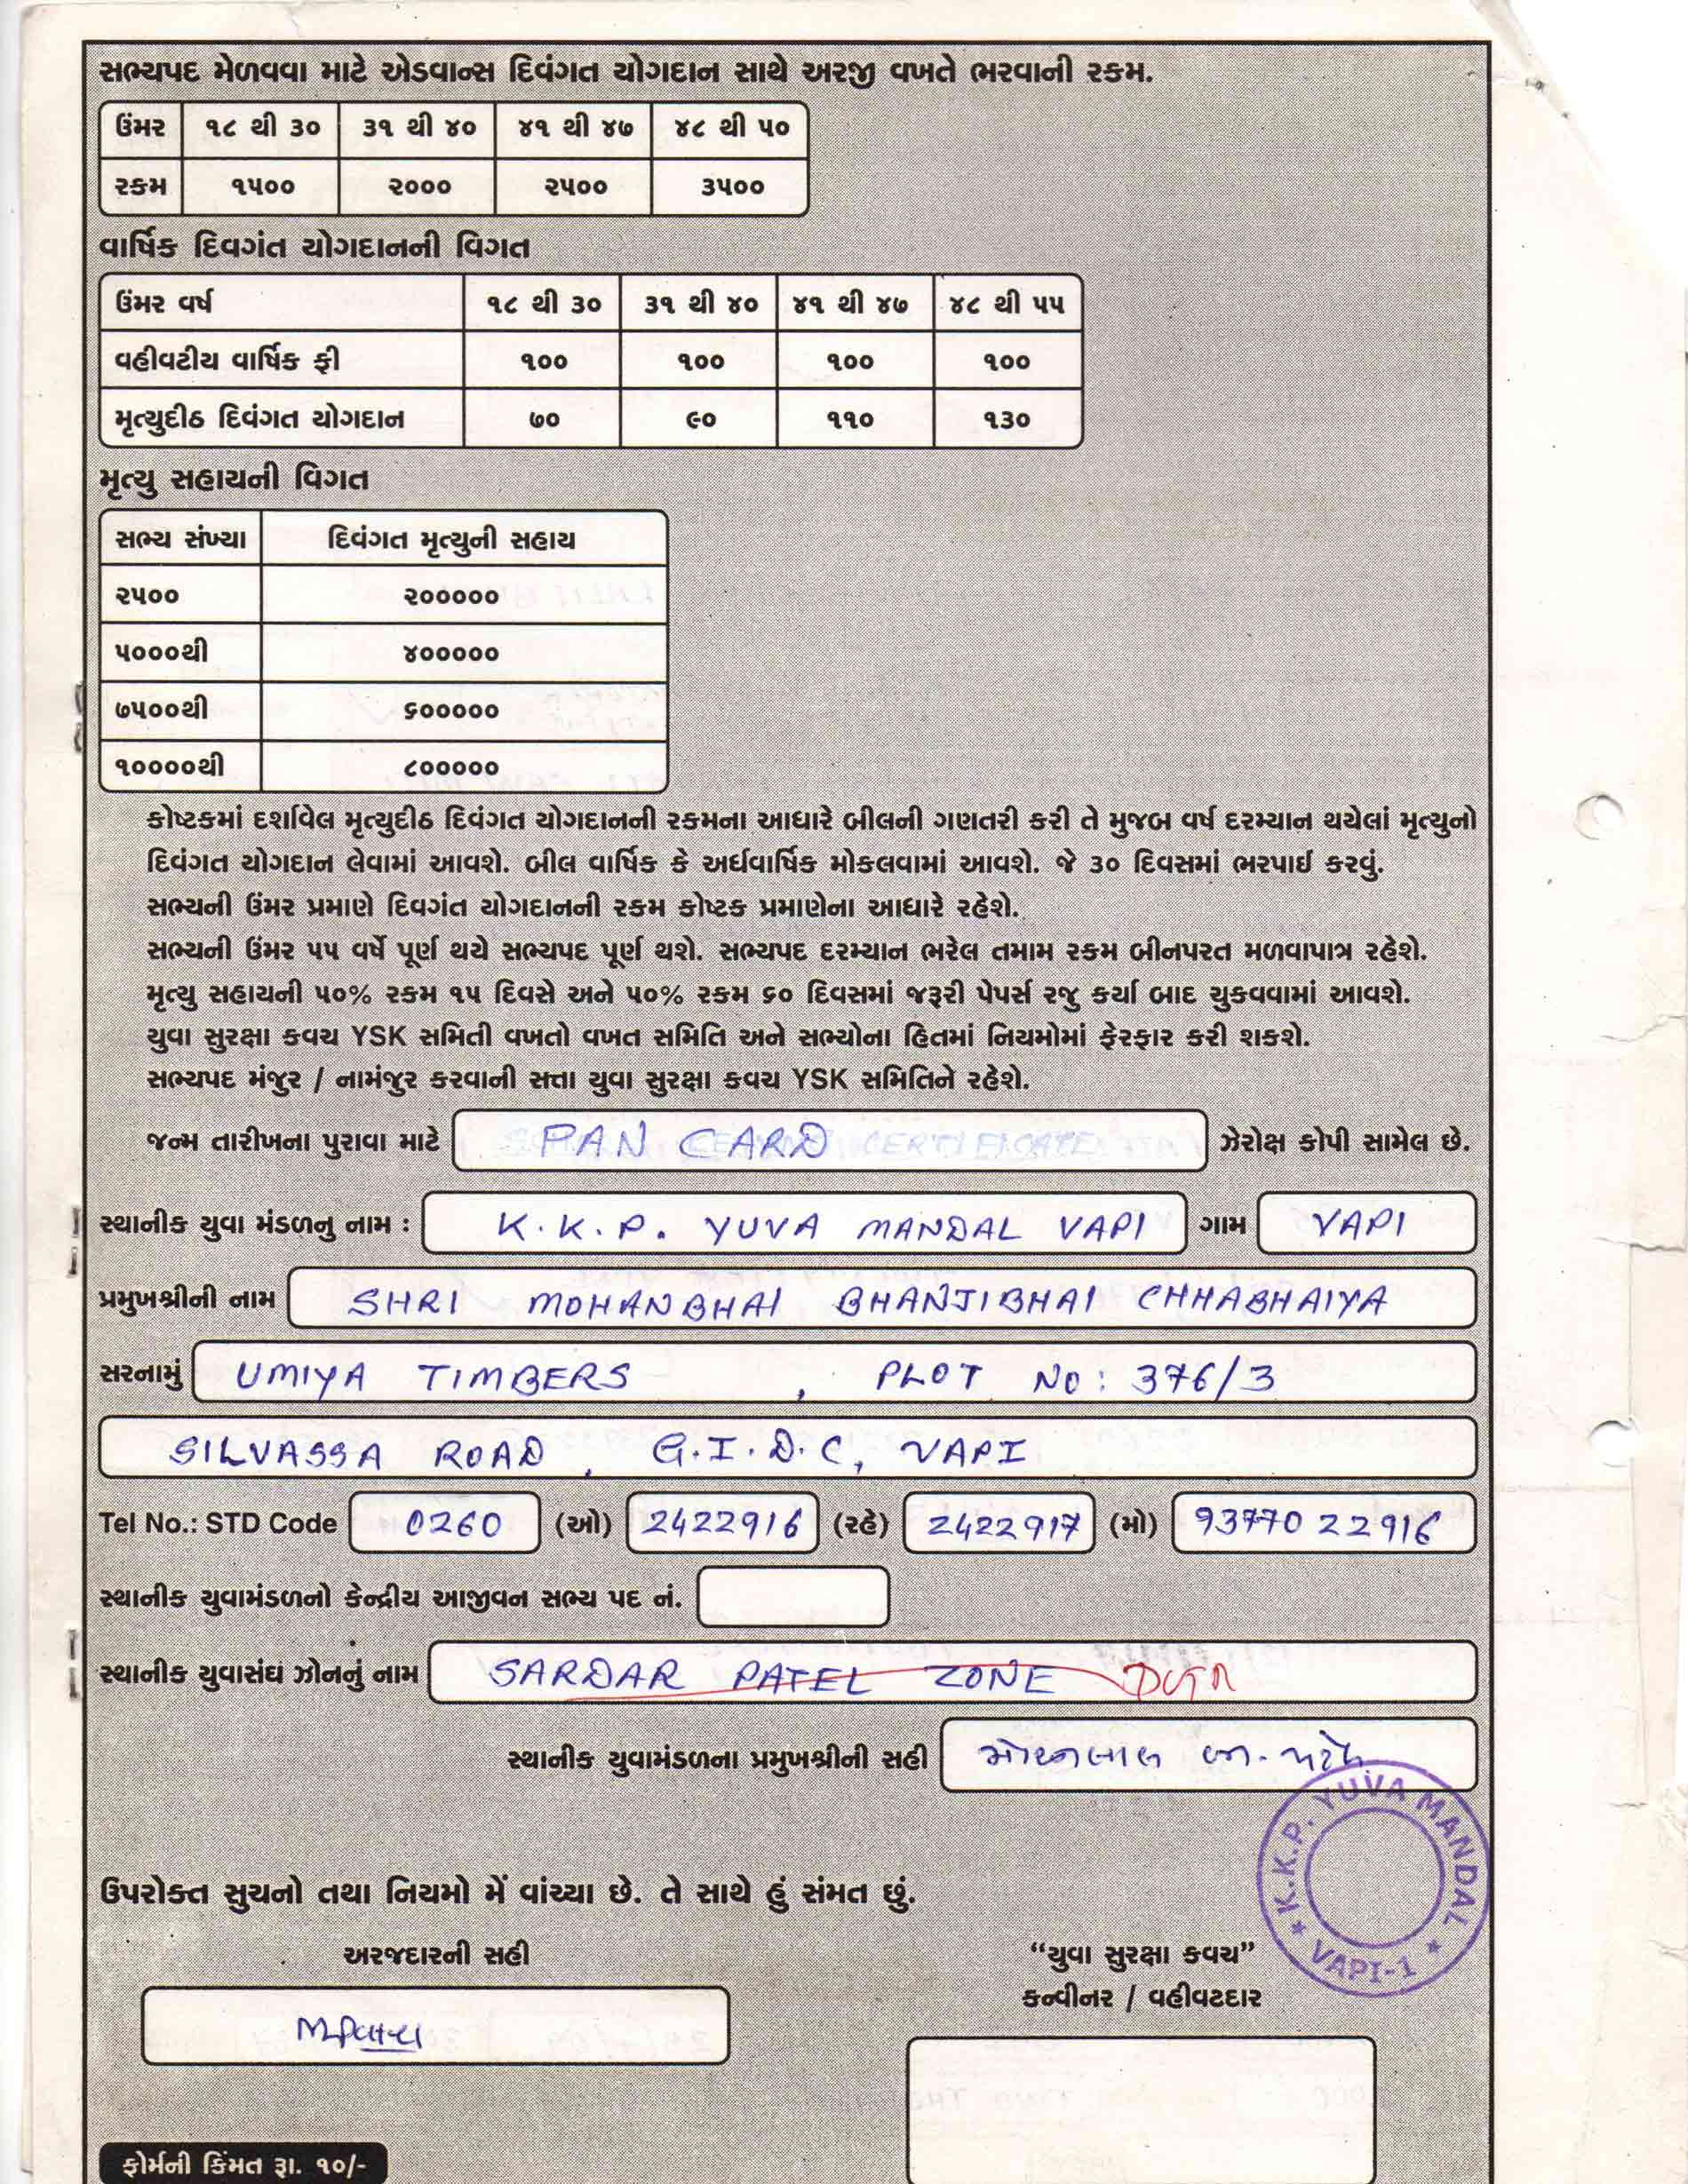 સભ્યપદ મેળવવા માટે એડવાન્સ દિવંગત યોગદાન સાથે અરજી વખતે ભરવાની રકમ.
ઉંમર ૧૮ થી ૩૦ ૩૧ થી ૪૦ ૪૧ થી ૪૭ ૪૮ થી ૫૦
રકમ ૧૫૦૦ ૨૦૦૦ ૨૫૦૦ ૩૫૦૦
વાર્ષિક દિવગંત યોગદાનની વિગત
ઉંમર વર્ષ ૧૮ થી ૩૦ ૩૧ થી ૪૦ ૪૧ થી ૪૭ ૪૮ થી ૫૫
વહીવટીય વાર્ષિક ફી ૧૦૦ ૧૦૦ ૧૦૦ ૧૦૦
મૃત્યુદીઠ દિવંગત યોગદાન ૭૦ ૯૦ ૧૧૦ ૧૩૦
મૃત્યુ સહાયની વિગત
સભ્ય સંખ્યા દિવંગત મૃત્યુની સહાય
૨૫૦૦ ૨૦૦૦૦૦
૫૦૦૦થી ૪૦૦૦૦૦
૭૫૦૦થી ૬૦૦૦૦૦
૧૦૦૦૦થી ૮૦૦૦૦૦
કોષ્ટકમાં દર્શાવેલ મૃત્યુદીઠ દિવંગત યોગદાનની રકમના આધારે બીલની ગણતરી કરી તે મુજબ વર્ષ દરમ્યાન થયેલાં મૃત્યુનો
દિવંગત યોગદાન લેવામાં આવશે. બીલ વાર્ષિક કે અર્ધવાર્ષિક મોકલવામાં આવશે. જે ૩૦ દિવસમાં ભરપાઈ કરવું.
સભ્યની ઉંમર પ્રમાણે દિવગંત યોગદાનની રકમ કોષ્ટક પ્રમાણેના આધારે રહેશે.
સભ્યની ઉંમર ૫૫ વર્ષે પૂર્ણ થયે સભ્યપદ પૂર્ણ થશે. સભ્યપદ દરમ્યાન ભરેલ તમામ રકમ બીનપરત મળવાપાત્ર રહેશે.
મૃત્યુ સહાયની ૫૦% રકમ ૧૫ દિવસે અને ૫૦% રકમ ૬૦ દિવસમાં જરૂરી પેપર્સ રજુ કર્યા બાદ ચુકવવામાં આવશે.
યુવા સુરક્ષા કવચ YSK સમિતી વખતો વખત સમિતિ અને સભ્યોના હિતમાં નિયમોમાં ફેરફાર કરી શકશે.
સભ્યપદ મંજુર / નામંજુર કરવાની સત્તા યુવા સુરક્ષા કવચ YSK સમિતિને રહેશે.
જન્મ તારીખના પુરાવા માટે PAN CARD ઝેરોક્ષ કોપી સામેલ છે.
સ્થાનીક યુવા મંડળનુ નામ : K.K.P. YUVA MANDAL VAPI ગામ VAPI
પ્રમુખશ્રીની નામ SHRI MOHANBHAI BHANJIBHAI CHHABHAIYA
સરનામું UMIYA TIMBERS, PLOT NO: 376/3
SILVASSA ROAD, G.I.D.C, VAPI
Tel No.: STD Code 0260 (ઓ) 2422916 (રહે) 2422917 (મો) 9377022916
સ્થાનીક યુવામંડળનો કેન્દ્રીય આજીવન સભ્ય પદ નં.
સ્થાનીક યુવાસંઘ ઝોનનું નામ SARDAR PATEL ZONE
સ્થાનીક યુવામંડળના પ્રમુખશ્રીની સહી
K.K.P. YUVA MANDAL
★ VAPI-1 ★
ઉપરોક્ત સુચનો તથા નિયમો મેં વાંચ્યા છે. તે સાથે હું સંમત છું.
અરજદારની સહી
“યુવા સુરક્ષા કવચ”
કન્વીનર / વહીવટદાર
ફોર્મની કિંમત રૂા. ૧૦/-